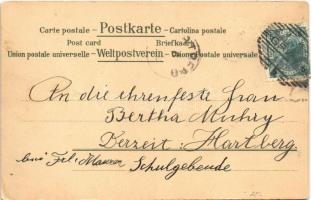 Carte postale - Postkarte - Cartolina postale
Post card Briefkaart
Union postale universelle - Weltpostverein - Unione postale universale
An die ehrenfeste Frau
Bertha
Derzeit: Hartberg
bei Frl. Maurer Schulgebende